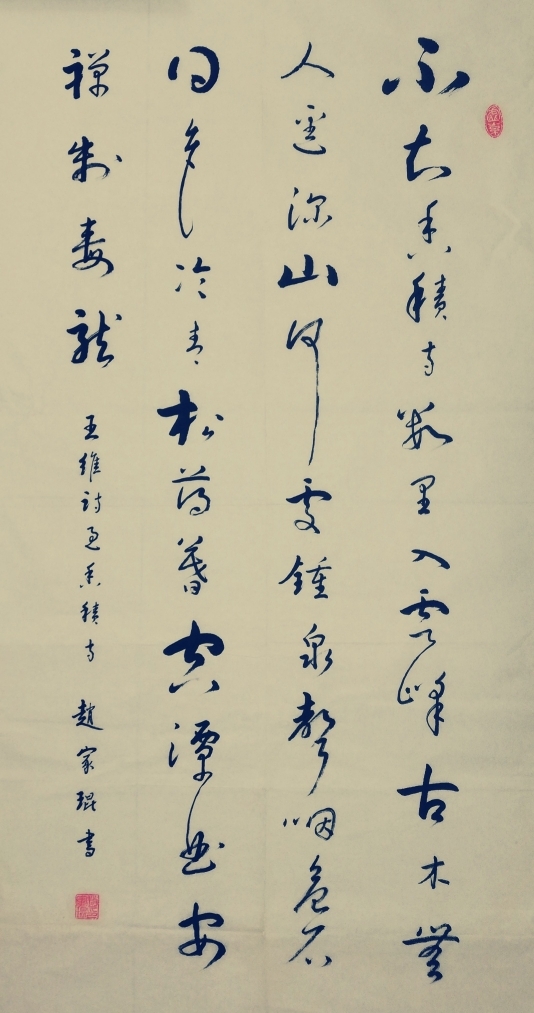 不知香積寺數里入雲峰古木無
人逕深山何處鍾泉聲咽危石
日色冷青松薄暮空潭曲安
禅制毒龍
王維詩過香積寺 趙家琨書